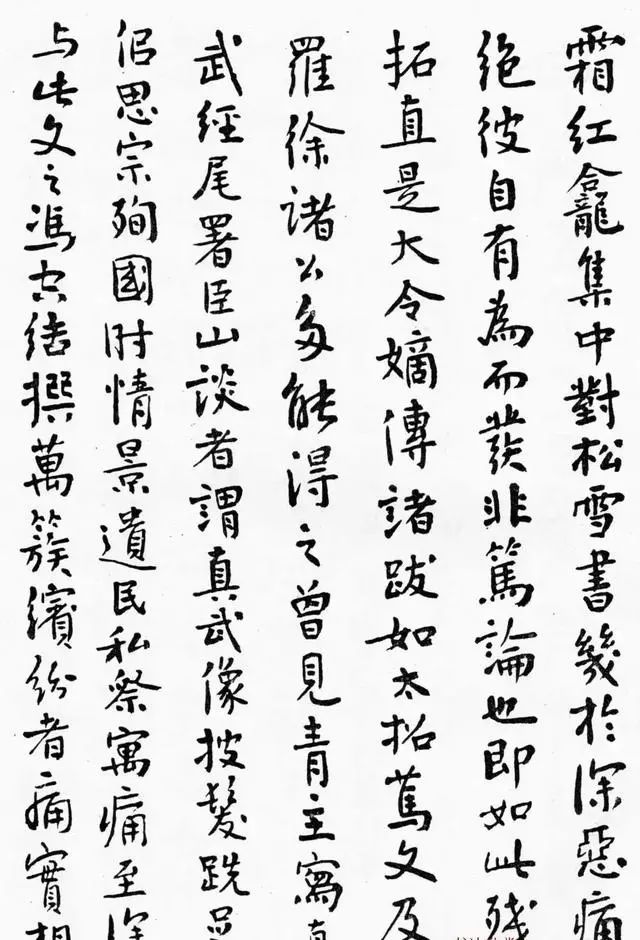 霜红龕集中對松雪書幾於深惡痛
絶彼自有為而發非篤論也即如此殘
拓直是大令嫡傳諸跋如太拓篤文及
羅徐諸公多能得之曾見青主寫真
武經尾署臣山談者謂真武像披髮跣足
佀思宗殉國时情景遺民私祭寓痛至深
与此文之馮空結撰萬簇繽紛者痛實相